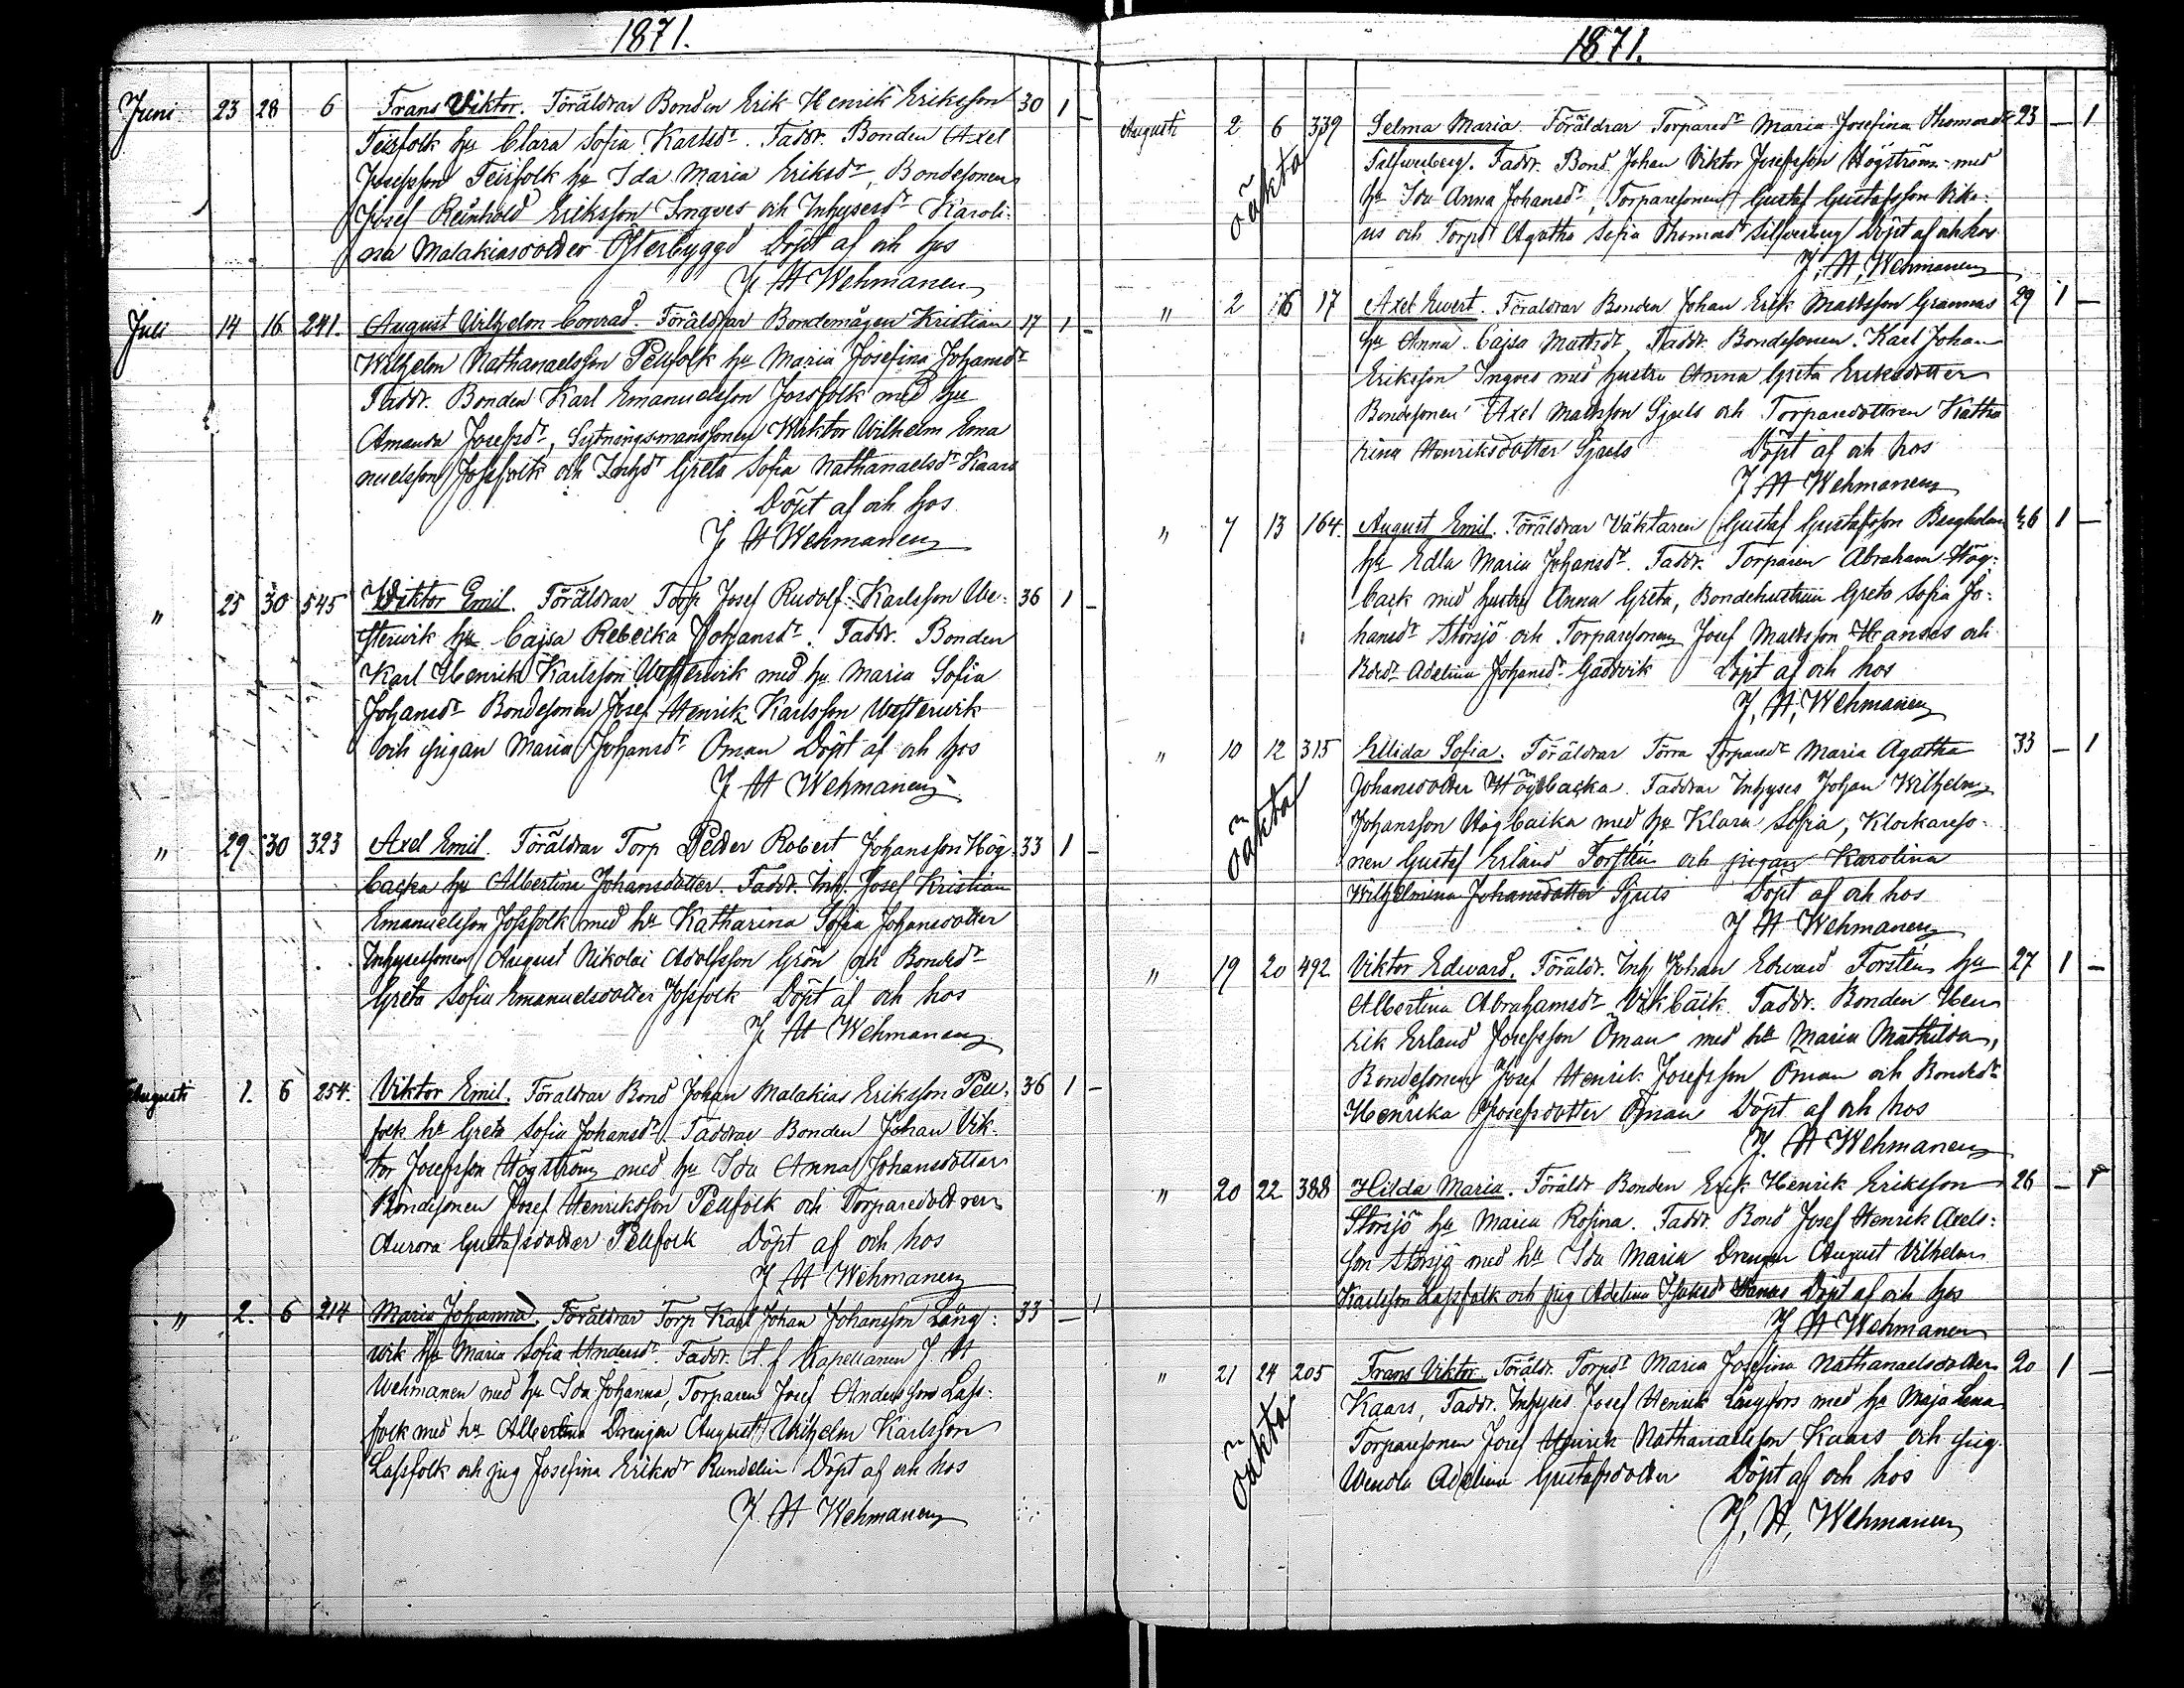 1871.
Juni 23 28 6 Frans Viktor. Föräldrar Bonden Erik Henrik Eriksson 30 1 –
Teirfolk hu Clara Sofia Karlsdr. Faddr. Bonden Axel
Josefsson Teirfolk hu Ida Maria Eriksdr, Bondesonen
Josef Reinhold Eriksson Ingves och Inhysesdr Karoli:
na Malakiasdotter Österbyggd Döpt af och hos
J H Wehmanen
Juli 14 16 241. August Wilhelm Conrad. Föräldrar Bondemågen Kristian 17 1 –
Wilhelm Nathanaelsson Pellfolk hu Maria Josefina Johansdr
Faddr. Bonden Karl Emanuelsson Josfolk med hu
Amanda Josefsdr, Sytningsmanssonen Wiktor Wilhelm Ema
nuelsson Josfolk och Inhdr Greta Sofia Nathanaelsdr Kaars
Döpt af och hos
J H Wehmanen
" 25 30 545 Wiktor Emil. Föräldrar Torp Josef Rudolf Karlsson We: 36 1 –
sterwik hu Cajsa Rebecka Johansdr. Faddr. Bonden
Karl Henrik Karlsson Westerwik med hu Maria Sofia
Johansdr Bondesonen Josef Henrik Karlsson Westerwik
och pigan Maria Johansdr Öman Döpt af och hos
J H Wehmanen
" 29 30 323 Axel Emil. Föräldrar Torp Petter Robert Johansson Hög 33 1 –
backa hu Albertina Johansdotter. Faddr. Inh. Josef Kristian
Emanuelsson Josfolk med hu Katharina Sofia Johansdotter
Inhysessonen August Nikolai Adolfsson Grön och Bondedr
Greta Sofia Emanuelsdotter Josfolk Döpt af och hos
J H Wehmanen
Augusti 1. 6 254. Viktor Emil. Föräldrar Bond Johan Malakias Eriksson Pell: 36 1 –
folk hu Greta Sofia Johansdr. Faddrar Bonden Johan Vik:
tor Josefsson Högström med hu Ida Anna Johansdotter
Bondesonen Josef Henriksson Pellfolk och Torparedottren
Aurora Gustafsdotter Pellfolk Döpt af och hos
J H Wehmanen
" 2. 6 214 Maria Johanna. Föräldrar Torp Karl Johan Johansson Lång: 33 – 1
wik hu Maria Sofia Andersdr. Faddr. t. f Kapellanen J. H
Wehmanen med hu Ida Johanna, Torparen Josef Andersson Lass:
folk med hu Albertina Drengen August Wilhelm Karlsson
Lassfolk och pig Josefina Eriksdr Rundelin Döpt af och hos
J. H Wehmanen
1871.
Augusti 2 6 339 Selma Maria. Föräldrar Torparedr Maria Josefina Thomasdr 23 – 1
oäkta
Silfwerberg. Faddr. Bond Johan Viktor Josefsson Högström med
hu Ida Anna Johansdr, Torparesonen Gustaf Gustafsson Viks:
us och Torpdr Agatha Sofia Thomasdr Silfverberg Döpt af och hos
J, H, Wehmanen
" 2 16 17 Axel Evert. Föräldrar Bonden Johan Erik Mattsson Grannas 29 1 –
hu Anna Cajsa Mattsdr, Faddr. Bondesonen Karl Johan
Eriksson Ingves med hustru Anna Greta Eriksdotter
Bondesonen Axel Mattsson Sjuls och Torparedottren Katha
rina Henriksdotter Sjuls Döpt af och hos
J H Wehmanen
" 7 13 164. August Emil. Föräldrar Väktaren Gustaf Gustafsson Bergholm 26 1 –
hu Edla Maria Johansdr. Faddr. Torparen Abraham Hög:
back med hustru Anna Greta, Bondehustrun Greta Sofia Jo:
hansdr Storsjö och Torparesonen Josef Mattsson Hanses och
Bdedr Adelina Johansdr Gaddvik Döpt af och hos
J, H, Wehmanen
" 10 12 315 Elida Sofia. Föräldrar Förra Torparedr Maria Agatha 33 – 1
oäkta
Johansdotter Högbacka. Faddrar Inhyses Johan Wilhelm
Johansson Högbacka med hu Klara Sofia, Klockareso:
nen Gustaf Erland Forstén och pigan Karolina
Wilhelmina Johansdotter Sjuls Döpt af och hos
J H Wehmanen
" 19 20 492 Viktor Edward. Föräldr. Inh Johan Edward Forstén hu 27 1 –
Albertina Abrahamsdr Vikbäck Faddr. Bonden Hen
rik Erland Josefsson Öman med hu Maria Mathilda,
Bondesonen Josef Henrik Josefsson Öman och Bondedr
Henrika Josefsdotter Öman Döpt af och hos
J. H Wehmanen
" 20 22 388 Hilda Maria. Föräldr Bonden Erik Henrik Eriksson 26 – 1
Storsjö hu Maria Rosina. Faddr. Bond Josef Henrik Axels:
son Storsjö med hu Ida Maria Drengen August Vilhelm
Karlsson Lassfolk och pig Adelina Hanas Döpt af och hos
J H Wehmanen
" 21 24 205 Frans Viktor. Föräldr. Torpdr Maria Josefina Nathanaelsdotter 20 1 –
oäkta
Kaars, Faddr. Inhyses Josef Henrik Långfors med hu Maja Lena
Torparesonen Josef Henrik Nathanaelsson Kaars och pig
Wendla Adelina Gustafsdotter Döpt af och hos
J, H, Wehmanen